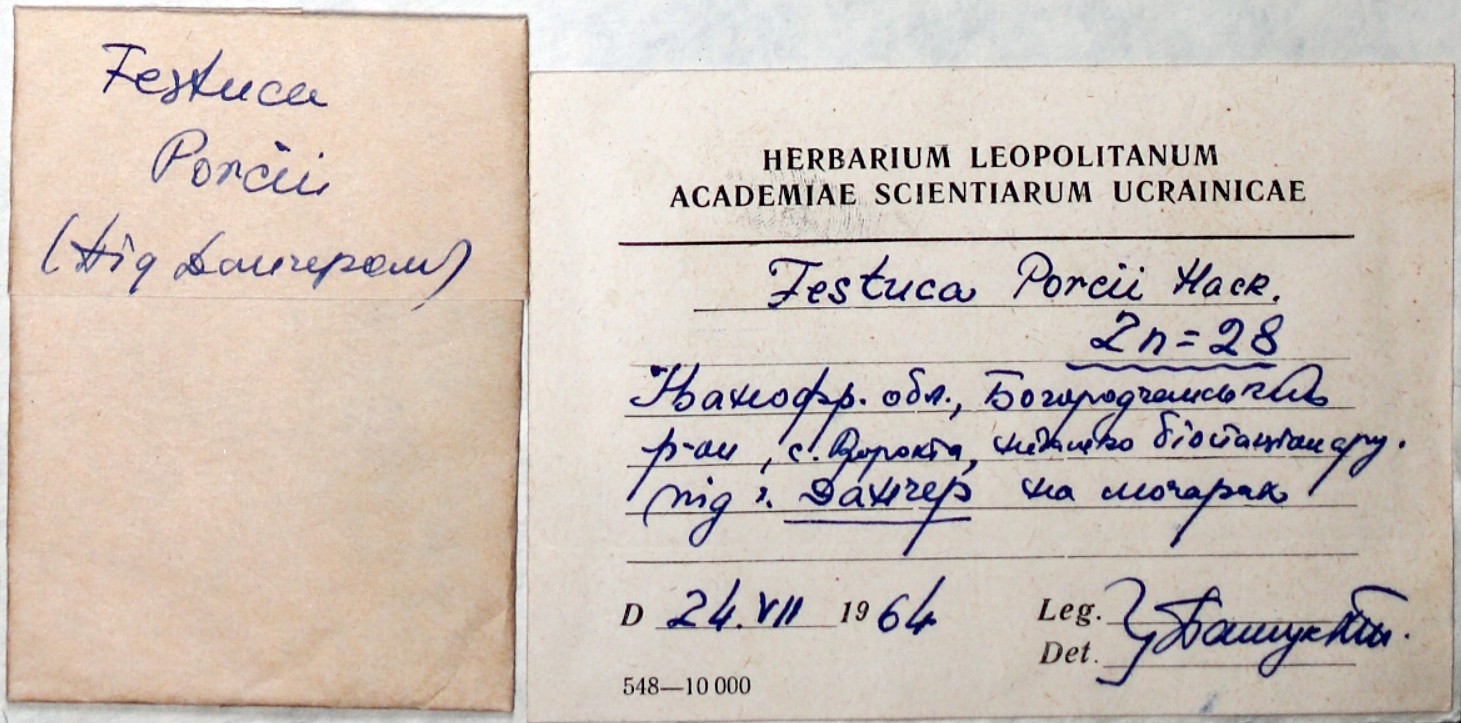 Festuca
Porcii
(Під Данчером)
HERBARIUM LEOPOLITANUM
ACADEMIAE SCIENTIARUM UCRAINICAE
Festuca Porcii Hack.
2n=28
Іванофр. обл., Богородчанський
р-он, с. Ворохта, біостаціонару.
під г. Данчер на мочарах
D 24.VII 1964 Leg.
Det.
548—10 000